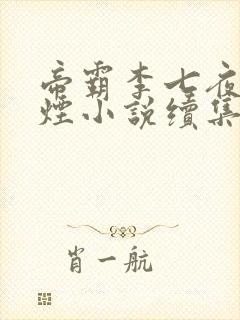 帝霸李七夜
煙小說續集
肖一航